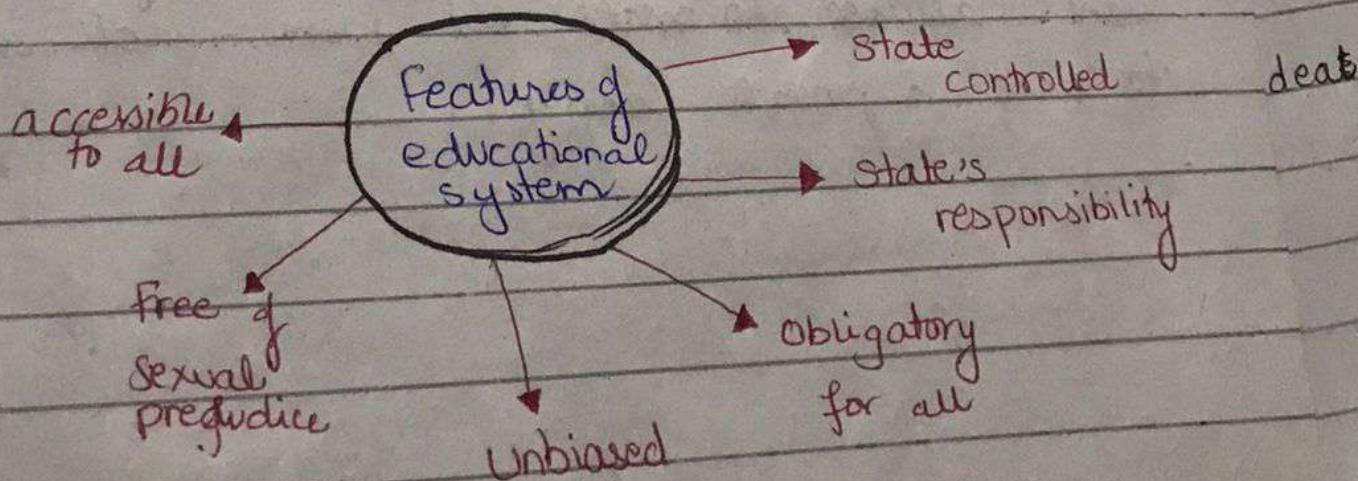 Features of
educational
system
state
controlled
state's
responsibility
obligatory
for all
Unbiased
free of
sexual
prejudice
accessible
to all